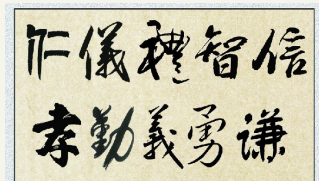 仁儀禮智信
孝勤義勇谦